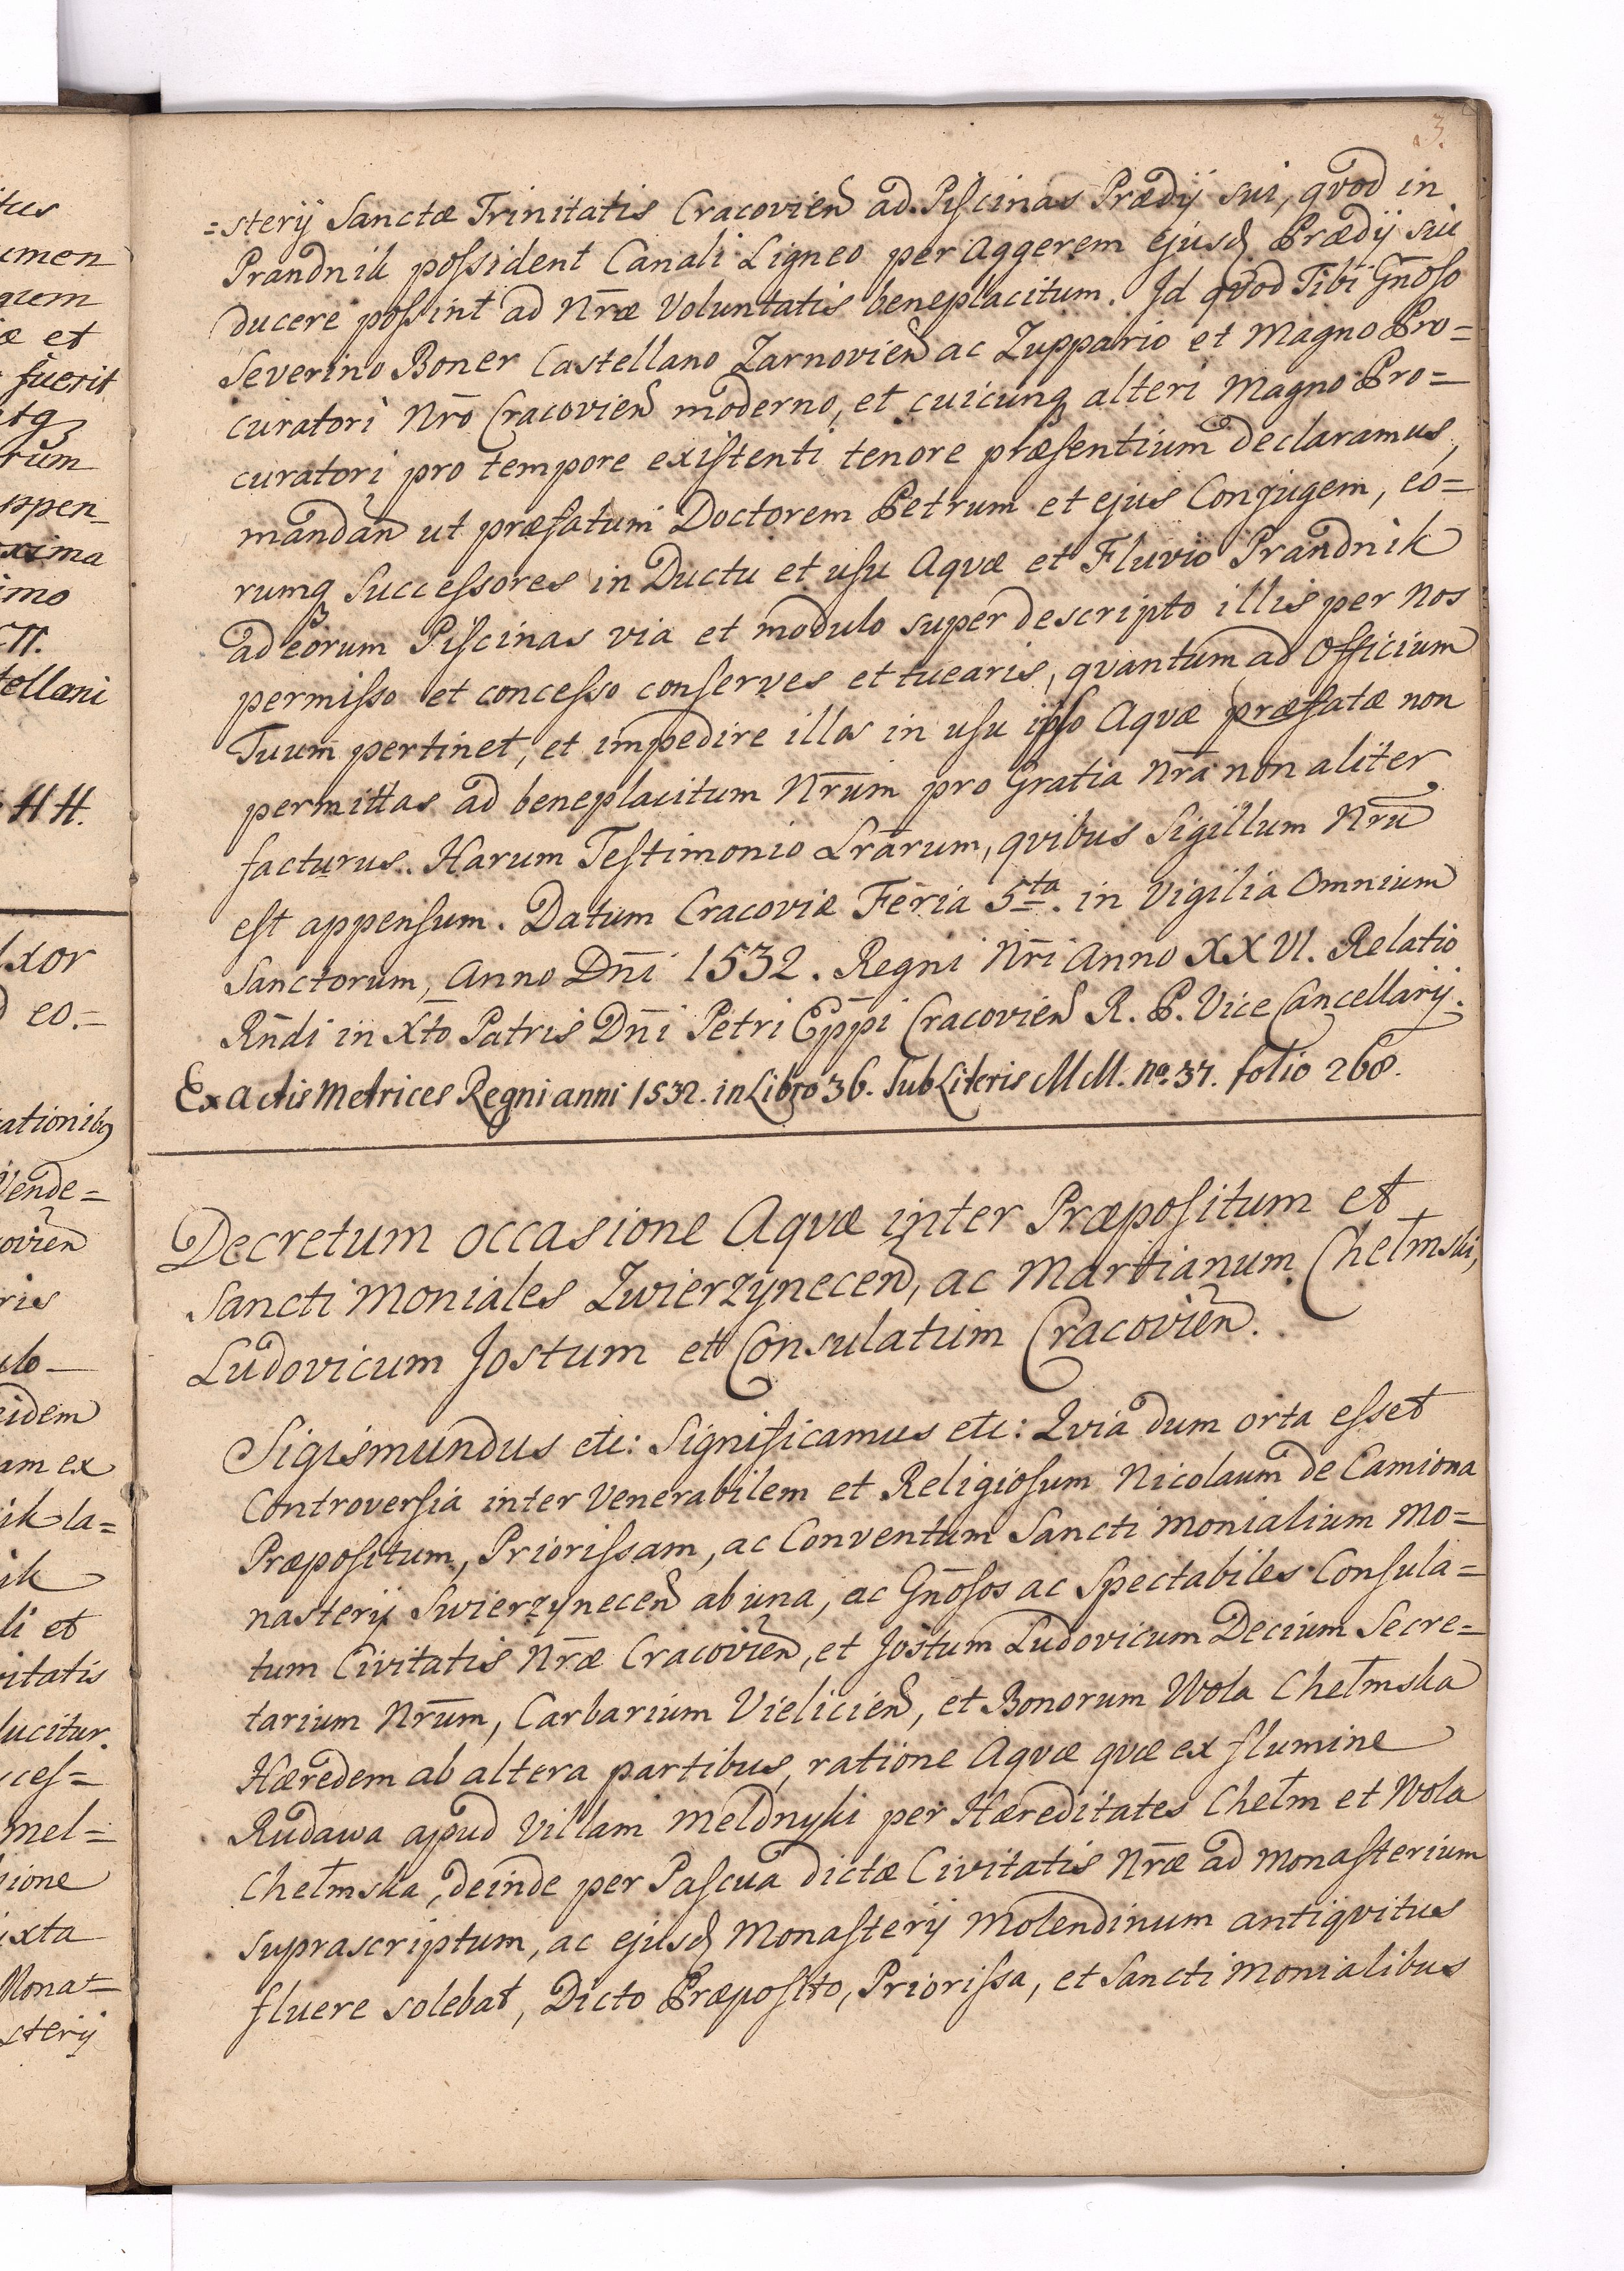 3.
=sterij Sanctæ Trinitatis Cracovien ad Piscinas Prædij sui, qvod in
Prandnik possident Canali Ligneo per Aggerem ejusd Prædij sui
ducere possint ad Nræ Voluntatis beneplacitum. Id qvod Tibi Gnoso
Severino Boner Castellano Zarnovien ac Zuppario et Magno Pro=
curatori Nro Cracovien moderno, et cuicunq alteri Magno Pro=
curatori pro tempore existenti tenore præsentium declaramus,
mandan ut præfatum Doctorem Petrum et ejus Conjugem, eo=
rumq Successores in Ductu et usu Aqvæ et Fluvio Prandnik
ad eorum Piscinas via et modulo superdescripto illis per Nos
permisso et concesso conserves et tuearis, qvantum ad Officium
Tuum pertinet, et impedire illos in usu ipso Aqvæ præfatæ non
permittas ad beneplacitum Nrum pro Gratia Nra non aliter
facturus. Harum Testimonio Lrarum, qvibus Sigillum Nru
est appensum. Datum Cracoviæ Feria 5ta. in Vigilia Omnium
Sanctorum, Anno Dni 1532. Regni Nri Anno XXVI. Relatio
Rndi in Xto Patris Dni Petri Eppi Cracovien R. P. Vice Cancellarij.
Ex Actis Metrices Regni anni 1532. in Libro 36. Sub Literis MM. no. 37. folio 268.
Decretum occasione Aqvæ inter Præpositum et
Sancti Moniales Zwierzynecen, ac Martianum Chełmski,
Ludovicum Jostum et Consulatum Cracovien.
Sigismundus etc: Significamus etc: Qvia dum orta esset
Controversia inter Venerabilem et Religiosum Nicolaum de Camiona
Præpositum, Priorissam, ac Conventum Sancti Monialium Mo=
nasterij Swierzynecen ab una, ac Gnosos ac Spectabiles Consula=
tum Civitatis Nræ Cracovien, et Jostum Ludovicum Decium Secre=
tarium Nrum, Carbarium Vielicien, et Bonorum Wola Chełmska
Hæredem ab altera partibus, ratione Aqvæ qvæ ex flumine
Rudawa apud Villam Meldnyki per Hæreditates Chełm et Wola
Chełmska, deinde per Pascua dictæ Civitatis Nræ ad Monasterium
suprascriptum, ac ejusd Monasterij Molendinum antiqvitus
fluere solebat, Dicto Præposito, Priorissa, et Sancti Monialibus